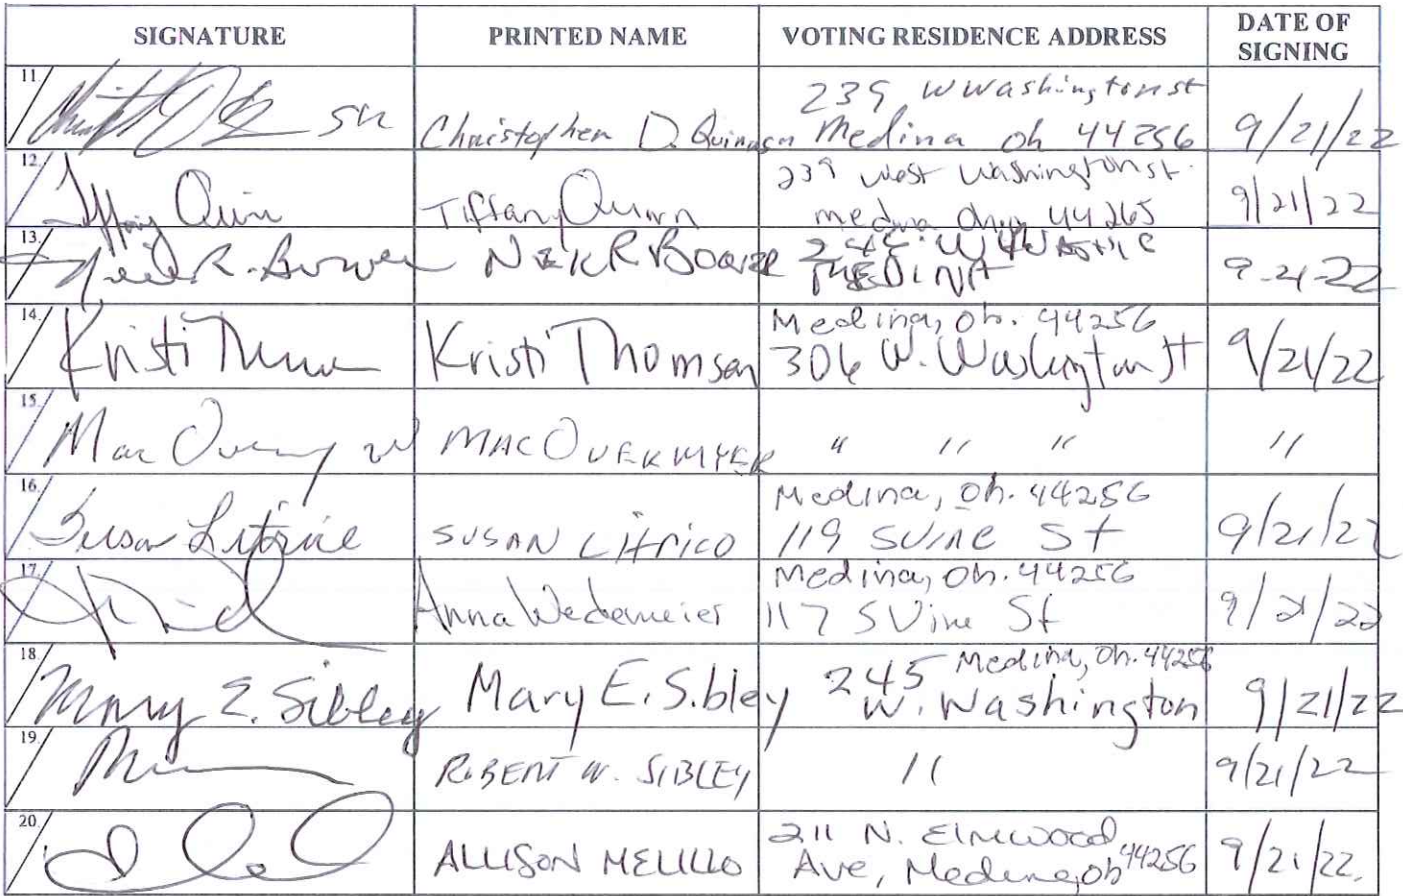 SIGNATURE PRINTED NAME VOTING RESIDENCE ADDRESS DATE OF SIGNING
11. SR Christopher D. Quinn 239 W Washington st
Medina Oh 44256 9/21/22
12. Tiffany Quinn Tiffany Quinn 239 West Washington st.
medina Ohio 44265 9/21/22
13. R. Bower R Bower W
MEDINA 9-21-22
14. Kristi Kristi Thomson Medina, Oh. 44256
306 W. Washington St 9/21/22
15. Mac MAC OVERMYER " " " "
16. Susan Litrico SUSAN Litrico Medina, Oh. 44256
119 S Vine St 9/21/22
17. Anna Wedemeier Medina, Oh. 44256
117 S Vine St 9/21/22
18. Mary E. Sibley Mary E. Sibley 245 Medina, Oh. 44256
W. Washington 9/21/22
19. ROBERT W. SIBLEY " 9/21/22
20. ALLISON MELILLO 211 N. Elmwood
Ave, Medina, Oh 44256 9/21/22.